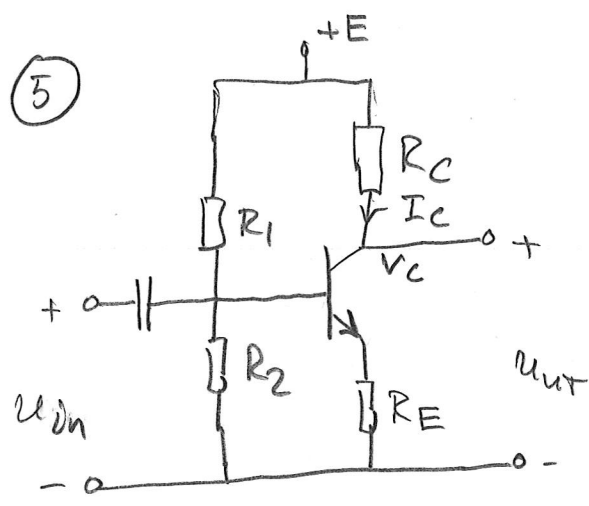 +E
5
RC
IC
R1
+
+
VC
R2
uin
RE
uut
-
-